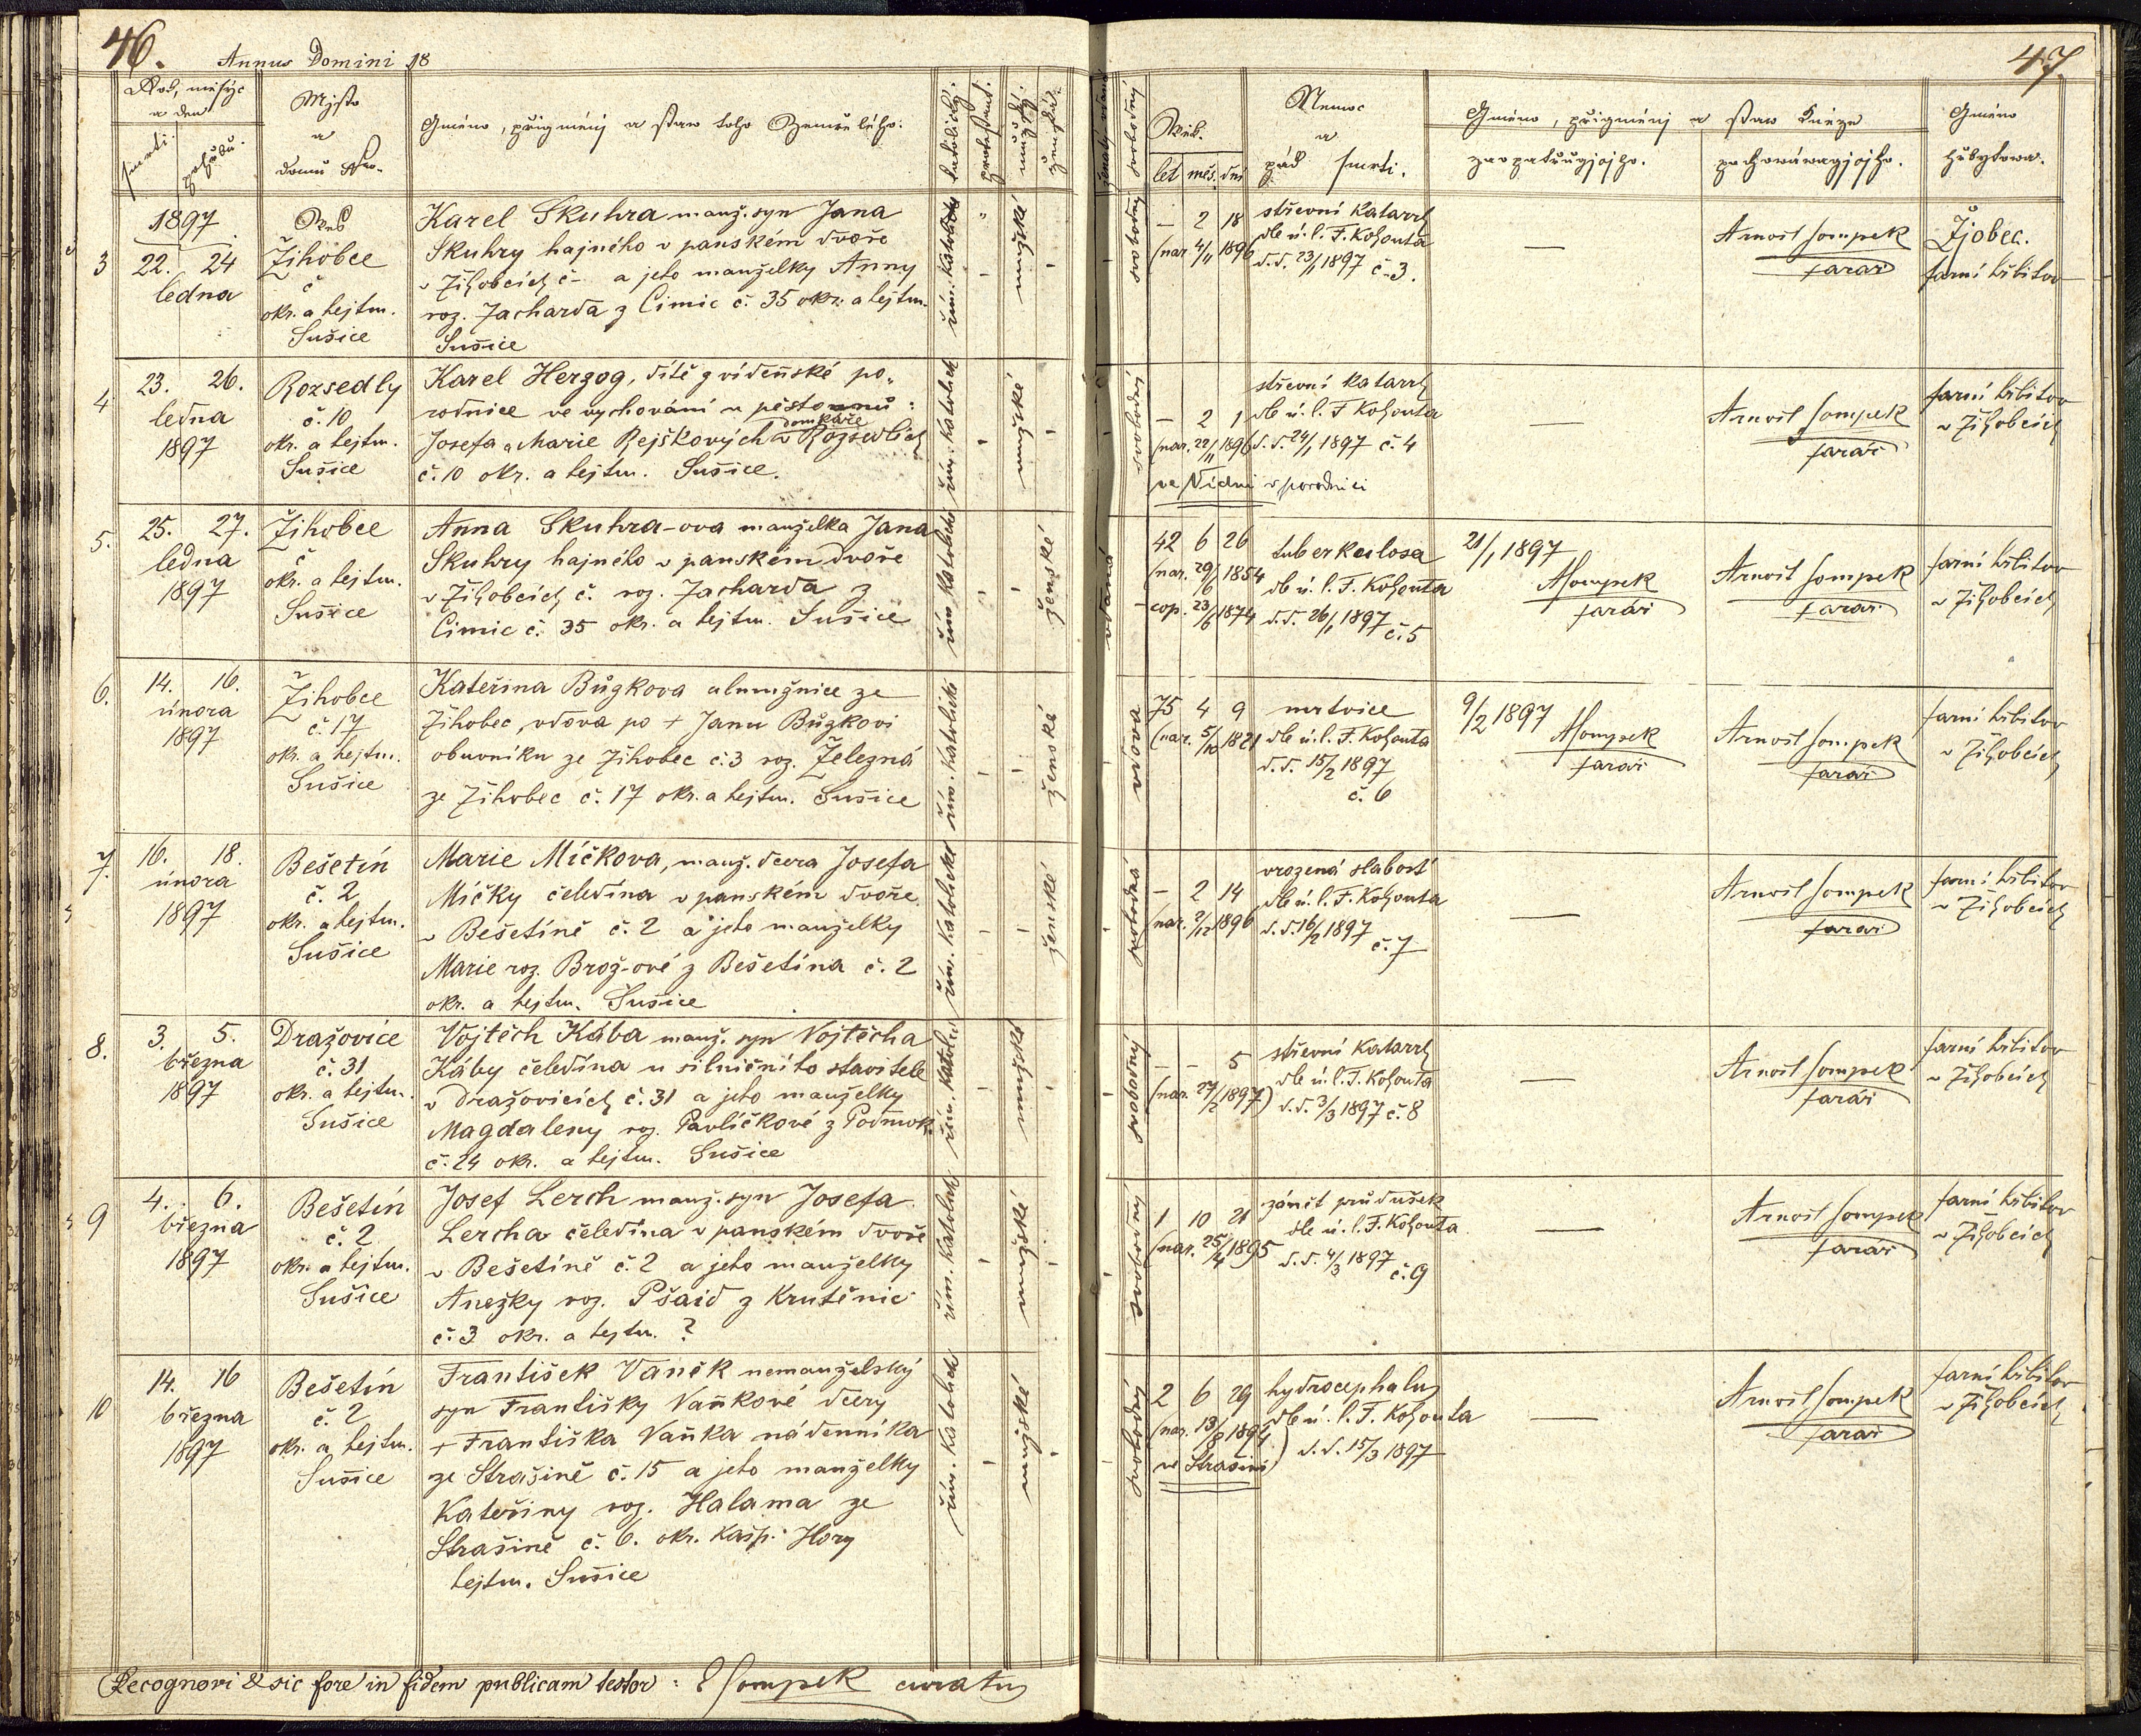 46.
Annus Domini 18
Rok, měsýc
a den
smrti.
pohřbu.
Mjsto
a
domu
Gméno, přigménj a staw toho Zemřelého.
katolický.
protestant.
mužský.
ženská.
3
1897
22. 24
ledna
Žihobce
č
okr. a hejtm.
Sušice
Karel Skuhra manž. syn Jana
Skuhry hajného v panském dvoře
v Žihobcích č – a jeho manželky Anny
roz. Zacharda z Cimic č. 35 okr. a hejtm.
Sušice
řím. katolické
mužské
4
23. 26.
ledna
1897
Rozsedly
č. 10
okr. a hejtm.
Sušice
Karel Herzog, dítě z vídeňské po„
rodnice ve vychování u pěstounů:
domkáře
Josefa a Marie Rejškových v Rozsedlích
č. 10 okr. a hejtm. Sušice.
řím. katolické
mužské
5.
25. 27.
ledna
1897
Žihobce
č
okr. a hejtm.
Sušice
Anna Skuhra-ova manželka Jana
Skuhry hajného v panském dvoře
v Žihobcích č. roz. Zacharda z
Cimic č. 35 okr. a hejtm. Sušice
řím. katolické
ženské
6.
14. 16.
února
1897
Žihobce
č. 17
okr. a hejtm.
Sušice
Kateřina Bůzkova almužnice ze
Žihobec, vdova po + Janu Bůzkovi
obuvníku ze Žihobec č. 3 roz. Železná
ze Žihobec č. 17 okr. a hejtm. Sušice
řím. katolické
ženské
7.
16. 18.
února
1897
Bešetín
č. 2
okr. a hejtm.
Sušice
Marie Míčkova, manž. dcera Josefa
Míčky čeledína v panském dvoře
v Bešetíně č. 2 a jeho manželky
Marie roz. Brož-ové z Bešetína č. 2
okr. a hejtm. Sušice
řím. katolické
ženské
8.
3. 5.
března
1897
Dražovice
č. 31
okr. a hejtm.
Sušice
Vojtěch Kába manž. syn Vojtěcha
Káby čeledína u silničního stavitele
v Dražovicích č. 31 a jeho manželky
Magdaleny roz. Pavlíčkové z Podmok
č. 24 okr. a hejtm. Sušice
řím. katolic.
mužské
9
4. 6.
března
1897
Bešetín
č. 2
okr. a hejtm.
Sušice
Josef Lerch manž. syn Josefa
Lercha čeledína v panském dvoře
v Bešetíně č. 2 a jeho manželky
Anežky roz. Pšaid z Krutěnic
č. 3 okr. a hejtm. ?
řím. katolické
mužské
10
14. 16
března
1897
Bešetín
č. 2
okr. a hejtm.
Sušice
František Vaněk nemanželský
syn Františky Vaňkové dcery
+ Františka Vaňka nádenníka
ze Strašině č. 15 a jeho manželky
Kateřiny roz. Halama ze
Strašině č. 6. okr. Kašp. Hory
hejtm. Sušice
řím. katolické
mužské
Recognovi & sic fore in fidem publicam testor: E Sompek curatus
47.
svobodný
Wěk.
let měs. dní
Nemoc
a
pád smrti.
Gméno, přigménj a staw kněze
zaopatřugjcjho.
pochowáwagjcjho.
Gméno
hřbytowa.
svobodný
– 2 18
(nar 4/11 1896
střevní katarrh
dle ú. l. F. Kohouta
d. d. 23/1 1897 č. 3.
—
Arnošt Sompek
farář
Žjobec.
farní hřbitov
svobodný
– 2 1
(nar. 22/11 1896
ve Vídni v porodnici
střevní katarrh
dle ú. l. F Kohouta
d. d. 24/1 1897 č. 4
—
Arnošt Sompek
farář
farní hřbitov
v Žihobcích
vdaná
42 6 26
(nar. 29/6 1854
cop. 23/6 1874
tuberkulosa
dle ú. l. F. Kohouta
d. d. 26/1 1897
č. 5
21/1 1897
ASompek
farář
Arnošt Sompek
farář
farní hřbitov
v Žihobcích
vdova
75 4 9
(nar. 5/10 1821
mrtvice
dle ú. l. F. Kohouta
d. d. 15/2 1897
č. 6
9/2 1897
ASompek
farář
Arnošt Sompek
farář
farní hřbitov
v Žihobcích
svobodná
– 2 14
nar. 2/12 1896
vrozená slabost
dle ú. l. F. Kohouta
d. d. 16/2 1897
č. 7
—
Arnošt Sompek
farář
farní hřbitov
v Žihobcích
svobodný
– – 5
(nar. 27/2 1897)
střevní katarrh
dle ú. l. F. Kohouta
d. d. 3/3 1897 č. 8
—
Arnošt Sompek
farář
farní hřbitov
v Žihobcích
svobodný
1 10 21
(nar. 25/4 1895
zánět průdušek
dle ú. l. F. Kohouta
d. d. 4/3 1897
č. 9
—
Arnošt Sompek
farář
farní hřbitov
v Žihobcích
svobodný
2 6 29
(nar. 13/8 1894)
ve Strašini
hydrocephalus
dle ú. l. F. Kohouta
d. d. 15/3 1897
—
Arnošt Sompek
farář
farní hřbitov
v Žihobcích